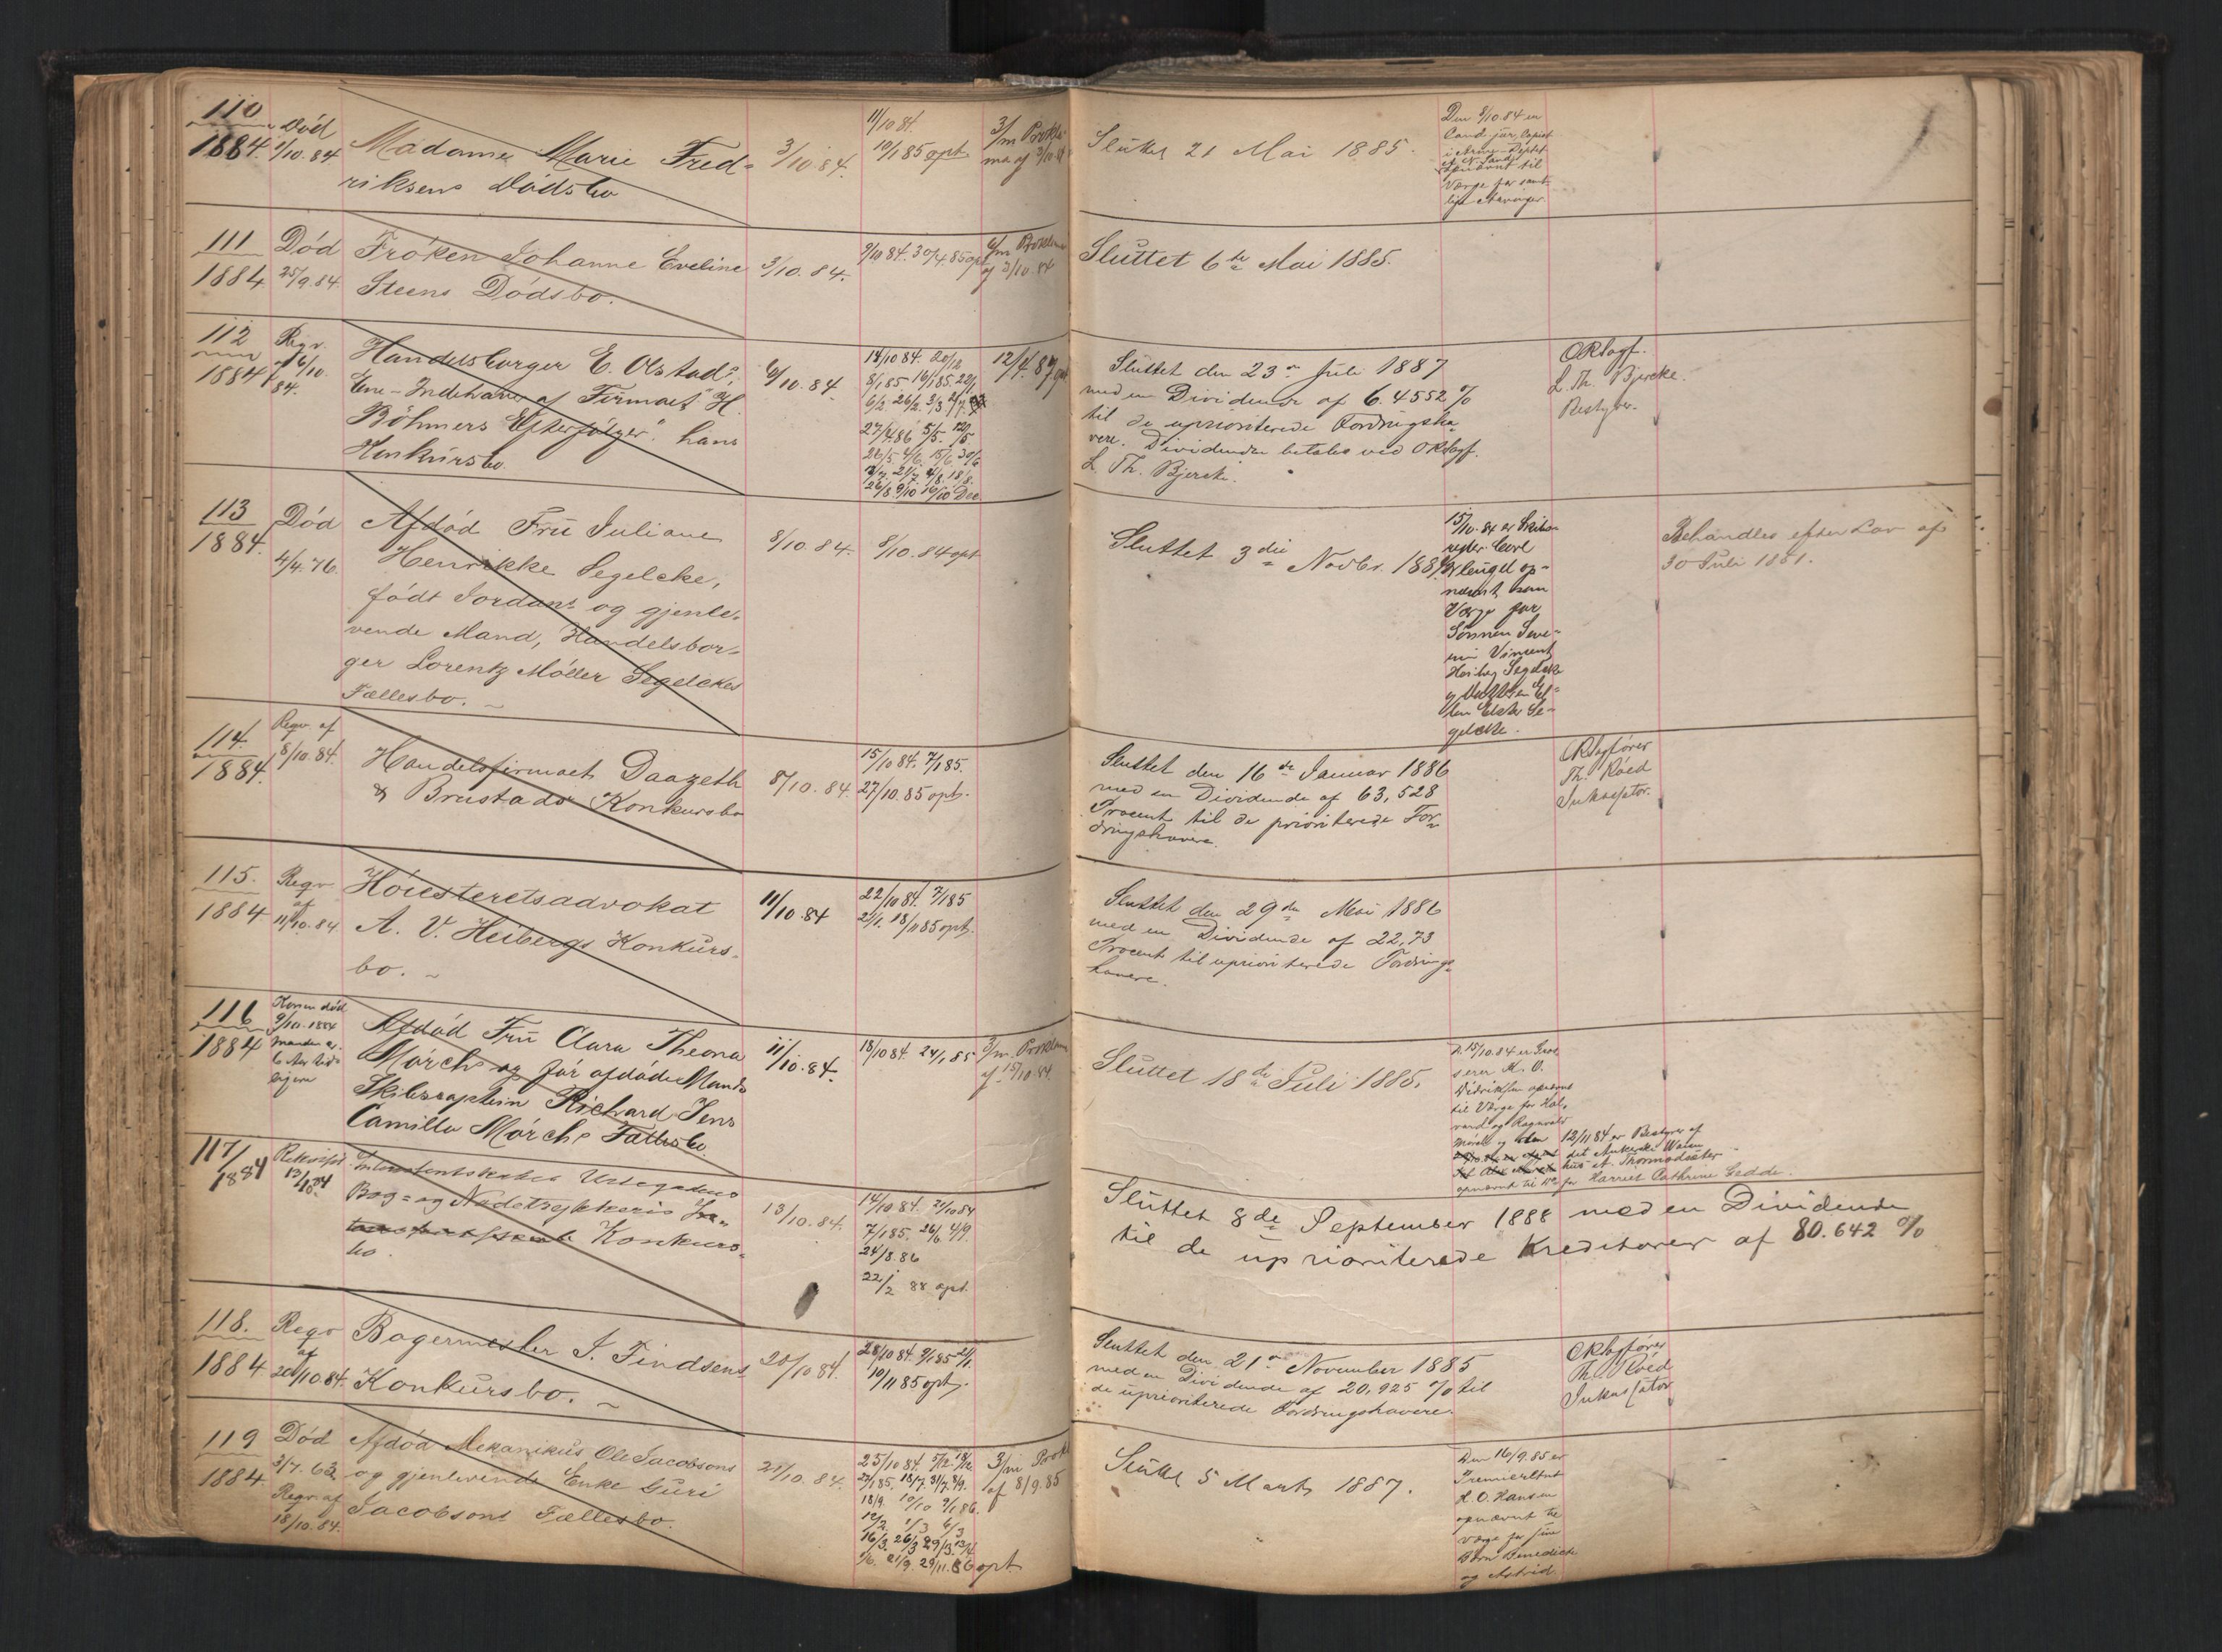 110
1884.
Død
1/10.84
Madame Marie Fred-
riksens Dødsbo
3/10 84.
11/10 84.
10/1 85 opt
3/m Prokla-
ma af 3/10 84
Sluttet 21 Mai 1885.
Den 8/10.84 er
Cand. jur, Copist
opnævnt til
Værge for samt-
lige Arvinger.
111
1884.
Død
25/9.84.
Frøken Johanne Eveline
Steens Dødsbo.
3/10.84.
9/10 84. 30/4.85 opt
6/m Proklama
af 3/10.84
Sluttet 6te Mai 1885.
112
1884
Reqv.
af 6/10.
84.
Handelsborger E. Olstad,
Ene-Indehaver af Firmaet "H.
Böhmers Efterfølger", hans
Konkursbo.
6/10.84.
14/10 84. 20/12
8/1 85 16/1 85 29/1
6/2 26/2. 3/3
27/4 86 5/5. 12/5
26/5 4/6. 15/6. 30/6
26/8 9/10 16/10 Dec
12/4.87 opt
Sluttet den 23de Juli 1887
med en Dividende af 6.4552 %
til de uprioriterede Fordringsha-
vere. Dividenden betales ved ORsagf.
L. Th. Bjercke.
ORsagf.
L. Th. Bjercke.
Bestyrer.
113
1884.
Død
4/4.76.
Afdød Frü Juliane
Henrikke Segelcke,
født Jordans og gjenle-
vende Mand, Handelsbor-
ger Lorentz Møller Segelckes
Fællesbo.
8/10.84.
8/10.84 opt
Sluttet 3die Novbr. 1884.
15/10.84 er Skibs-
reder Carl
op-
nævnt som
Værge for
Sønnen Seve-
rin Vincent
Heiberg Segelcke
Se-
gelcke.
Behandles efter Lov af
30 Juli 1851.
114.
1884.
Reqv. af
8/10.84.
Handelsfirmaet Daazeth
& Brustads Konkursbo
8/10.84.
15/10 84. 7/1 85.
27/10.85 opt.
Sluttet den 16de Januar 1886
med en Dividende af 63,528
Procent til de prioriterede For-
dringshavere.
ORsagfører
Th. Røed
Inkassator.
115.
1884
Reqv
af
11/10.84
Høiesteretsadvokat
A. V. Heibergs Konkurs-
bo.
11/10.84
22/10 84. 7/1 85
21/1. 18/11 85 opt.
Sluttet den 29de Mai 1886
med en Dividende af 22,73
Procent til uprioriterede Fordrings-
havere.
116
1884
Konen død
9/10.1884
Manden er
6 Aar tid-
ligere
Afdød Frü Clara Theona
Mørch og før afdøde Mands
Skibscaptein Richard Jens
Camillo Mørchs Fællesbo.
11/10.84.
18/10 84. 24/1 85
3/m. Proklama
af 15/10.84.
Sluttet 18de Juli 1885.
D. 15/10.84 er Gros-
serer K. O.
Didriksen opnævnt
til Værge for Hal-
vard og Ragnvald
Mørch og den 12/11 84 er Bestyrer af
det Ankerske Waisen
hus A. Thormodsæter
opnævnt til Do for Harriet Cathrine Gedde.
117/
1884
Rekvisit.
13/10.84
Interessentskabet Urtegadens
Bog- og Nodetrykkeris
Konkurs-
bo.
13/10.84.
14/10.84. 21/10 84
7/1 85. 26/6 4/9.
24/8.86
22/2 88 opt.
Sluttet 8de September 1888 med en Dividende
til de uprioriterede Kreditorer af 80.642 %
118.
1884
Reqv
af
20/10.84.
Bagermester J. Findsens
Konkursbo.
20/10 84.
28/10 84. 9/1 85 21/1.
10/11 85 opt.
Sluttet den 21de November 1885
med en Dividende af 20,925 % til
de uprioriterede Fordringshavere.
ORsagfører
Th. Røed
Inkassator
119
1884.
Død
3/7.63
Reqv. af
18/10.84.
Afdød Mekanikus Ole Jacobsons
og gjenlevende Enke Guri
Jacobsons Fællesbo.
21/10.84.
25/10 84. 5/12 19/12
27/1 85. 18/7. 31/7. 8/9.
18/9. 10/10 9/1 86.
12/2. 1/3 6/3
16/3. 26/3 29/3. 13/4
1/6. 21/9. 29/11.86 opt
3/m Prokl
af 8/9.85
Sluttet 5 Marts 1887.
Den 16/9.85 er
Premierltnt
H. O. Hansen
opnævnt til
Værge for sine
Børn Benedicte
og Astrid